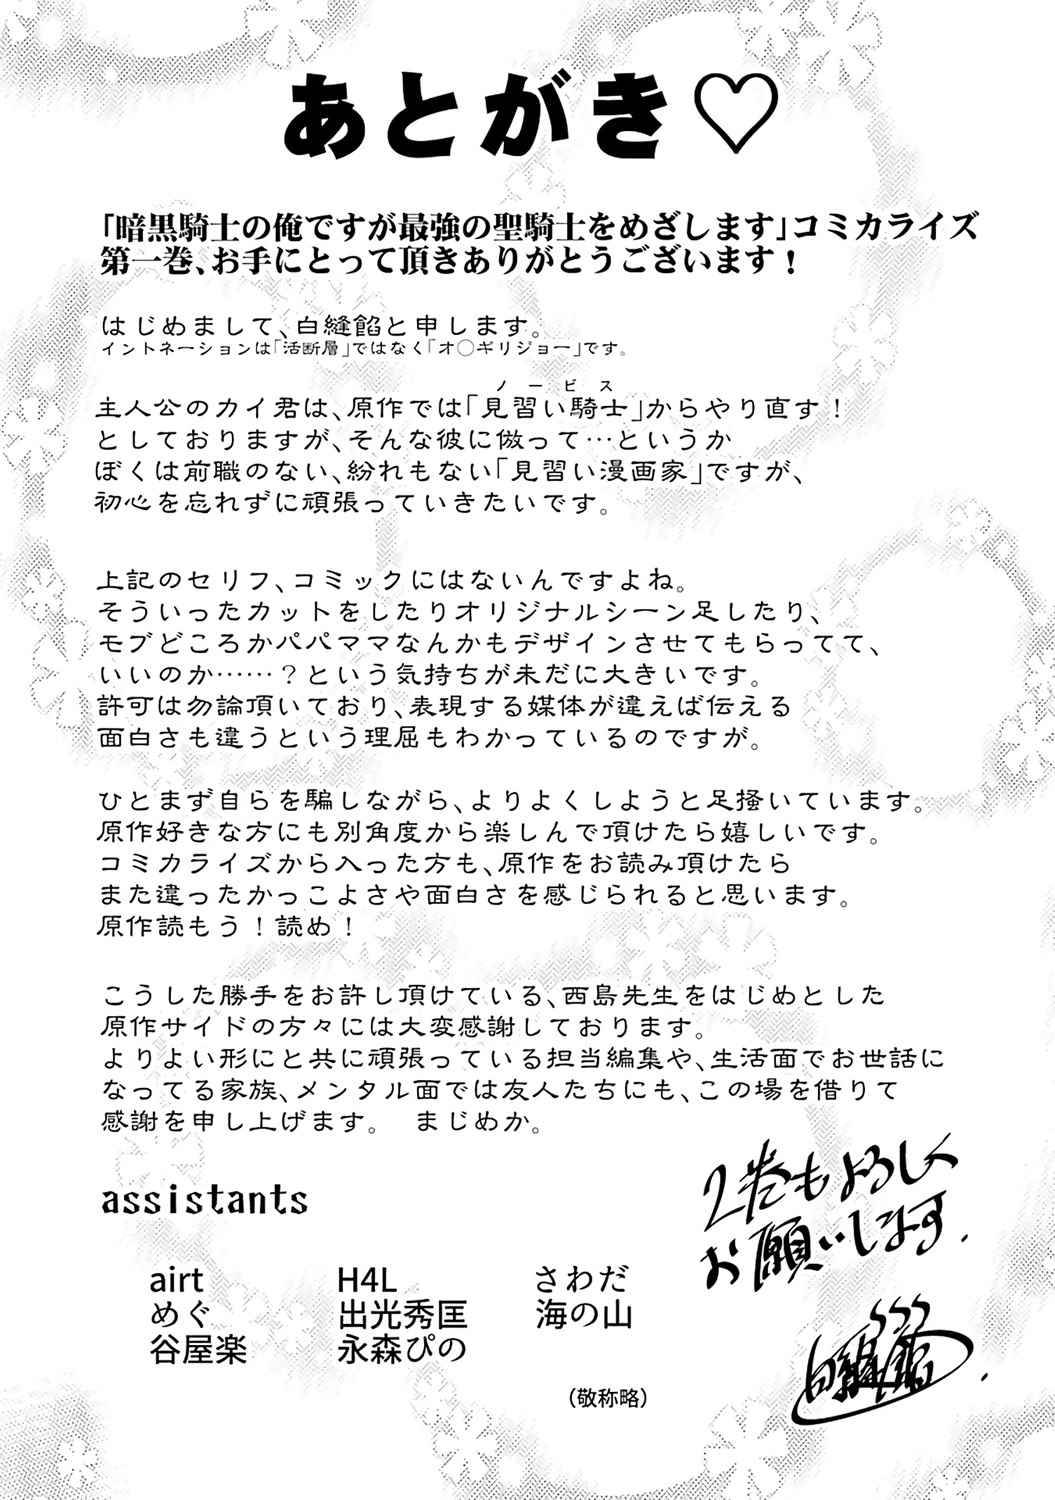 あとがき♡
「暗黒騎士の俺ですが最強の聖騎士をめざします」コミカライズ
第一巻、お手にとって頂きありがとうございます！
はじめまして、白縫餡と申します。
イントネーションは「活断層」ではなく「オ〇ギリジョー」です。
ノービス
主人公のカイ君は、原作では「見習い騎士」からやり直す！
としておりますが、そんな彼に倣って…というか
ぼくは前職のない、紛れもない「見習い漫画家」ですが、
初心を忘れずに頑張っていきたいです。
上記のセリフ、コミックにはないんですよね。
そういったカットをしたりオリジナルシーン足したり、
モブどころかパパママなんかもデザインさせてもらってて、
いいのか……？という気持ちが未だに大きいです。
許可は勿論頂いており、表現する媒体が違えば伝える
面白さも違うという理屈もわかっているのですが。
ひとまず自らを騙しながら、よりよくしようと足掻いています。
原作好きな方にも別角度から楽しんで頂けたら嬉しいです。
コミカライズから入った方も、原作をお読み頂けたら
また違ったかっこよさや面白さを感じられると思います。
原作読もう！読め！
こうした勝手をお許し頂けている、西島先生をはじめとした
原作サイドの方々には大変感謝しております。
よりよい形にと共に頑張っている担当編集や、生活面でお世話に
なってる家族、メンタル面では友人たちにも、この場を借りて
感謝を申し上げます。　まじめか。
2巻もよろしく
お願いします.
白縫餡.
assistants
airt　H4L　さわだ
めぐ　出光秀匡　海の山
谷屋楽　永森ぴの
（敬称略）